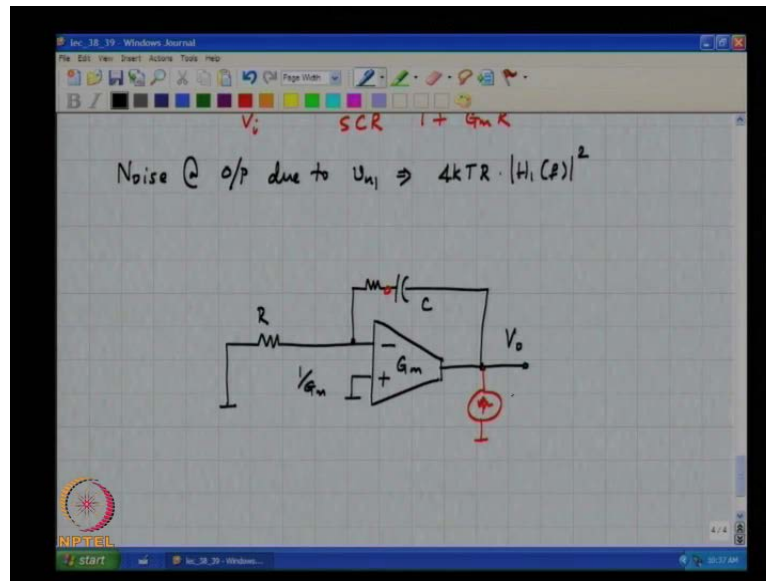 lec_38_39 - Windows Journal
File Edit View Insert Actions Tools Help
Page Width
B I
Vi SCR 1 + GmR
Noise @ O/P due to Un1 ⇒ 4kTR · |H1(f)|²
C
R
V0
1/Gm
Gm
- +
4/4
NPTEL
start lec_38_39 - Windows... 10:37 AM